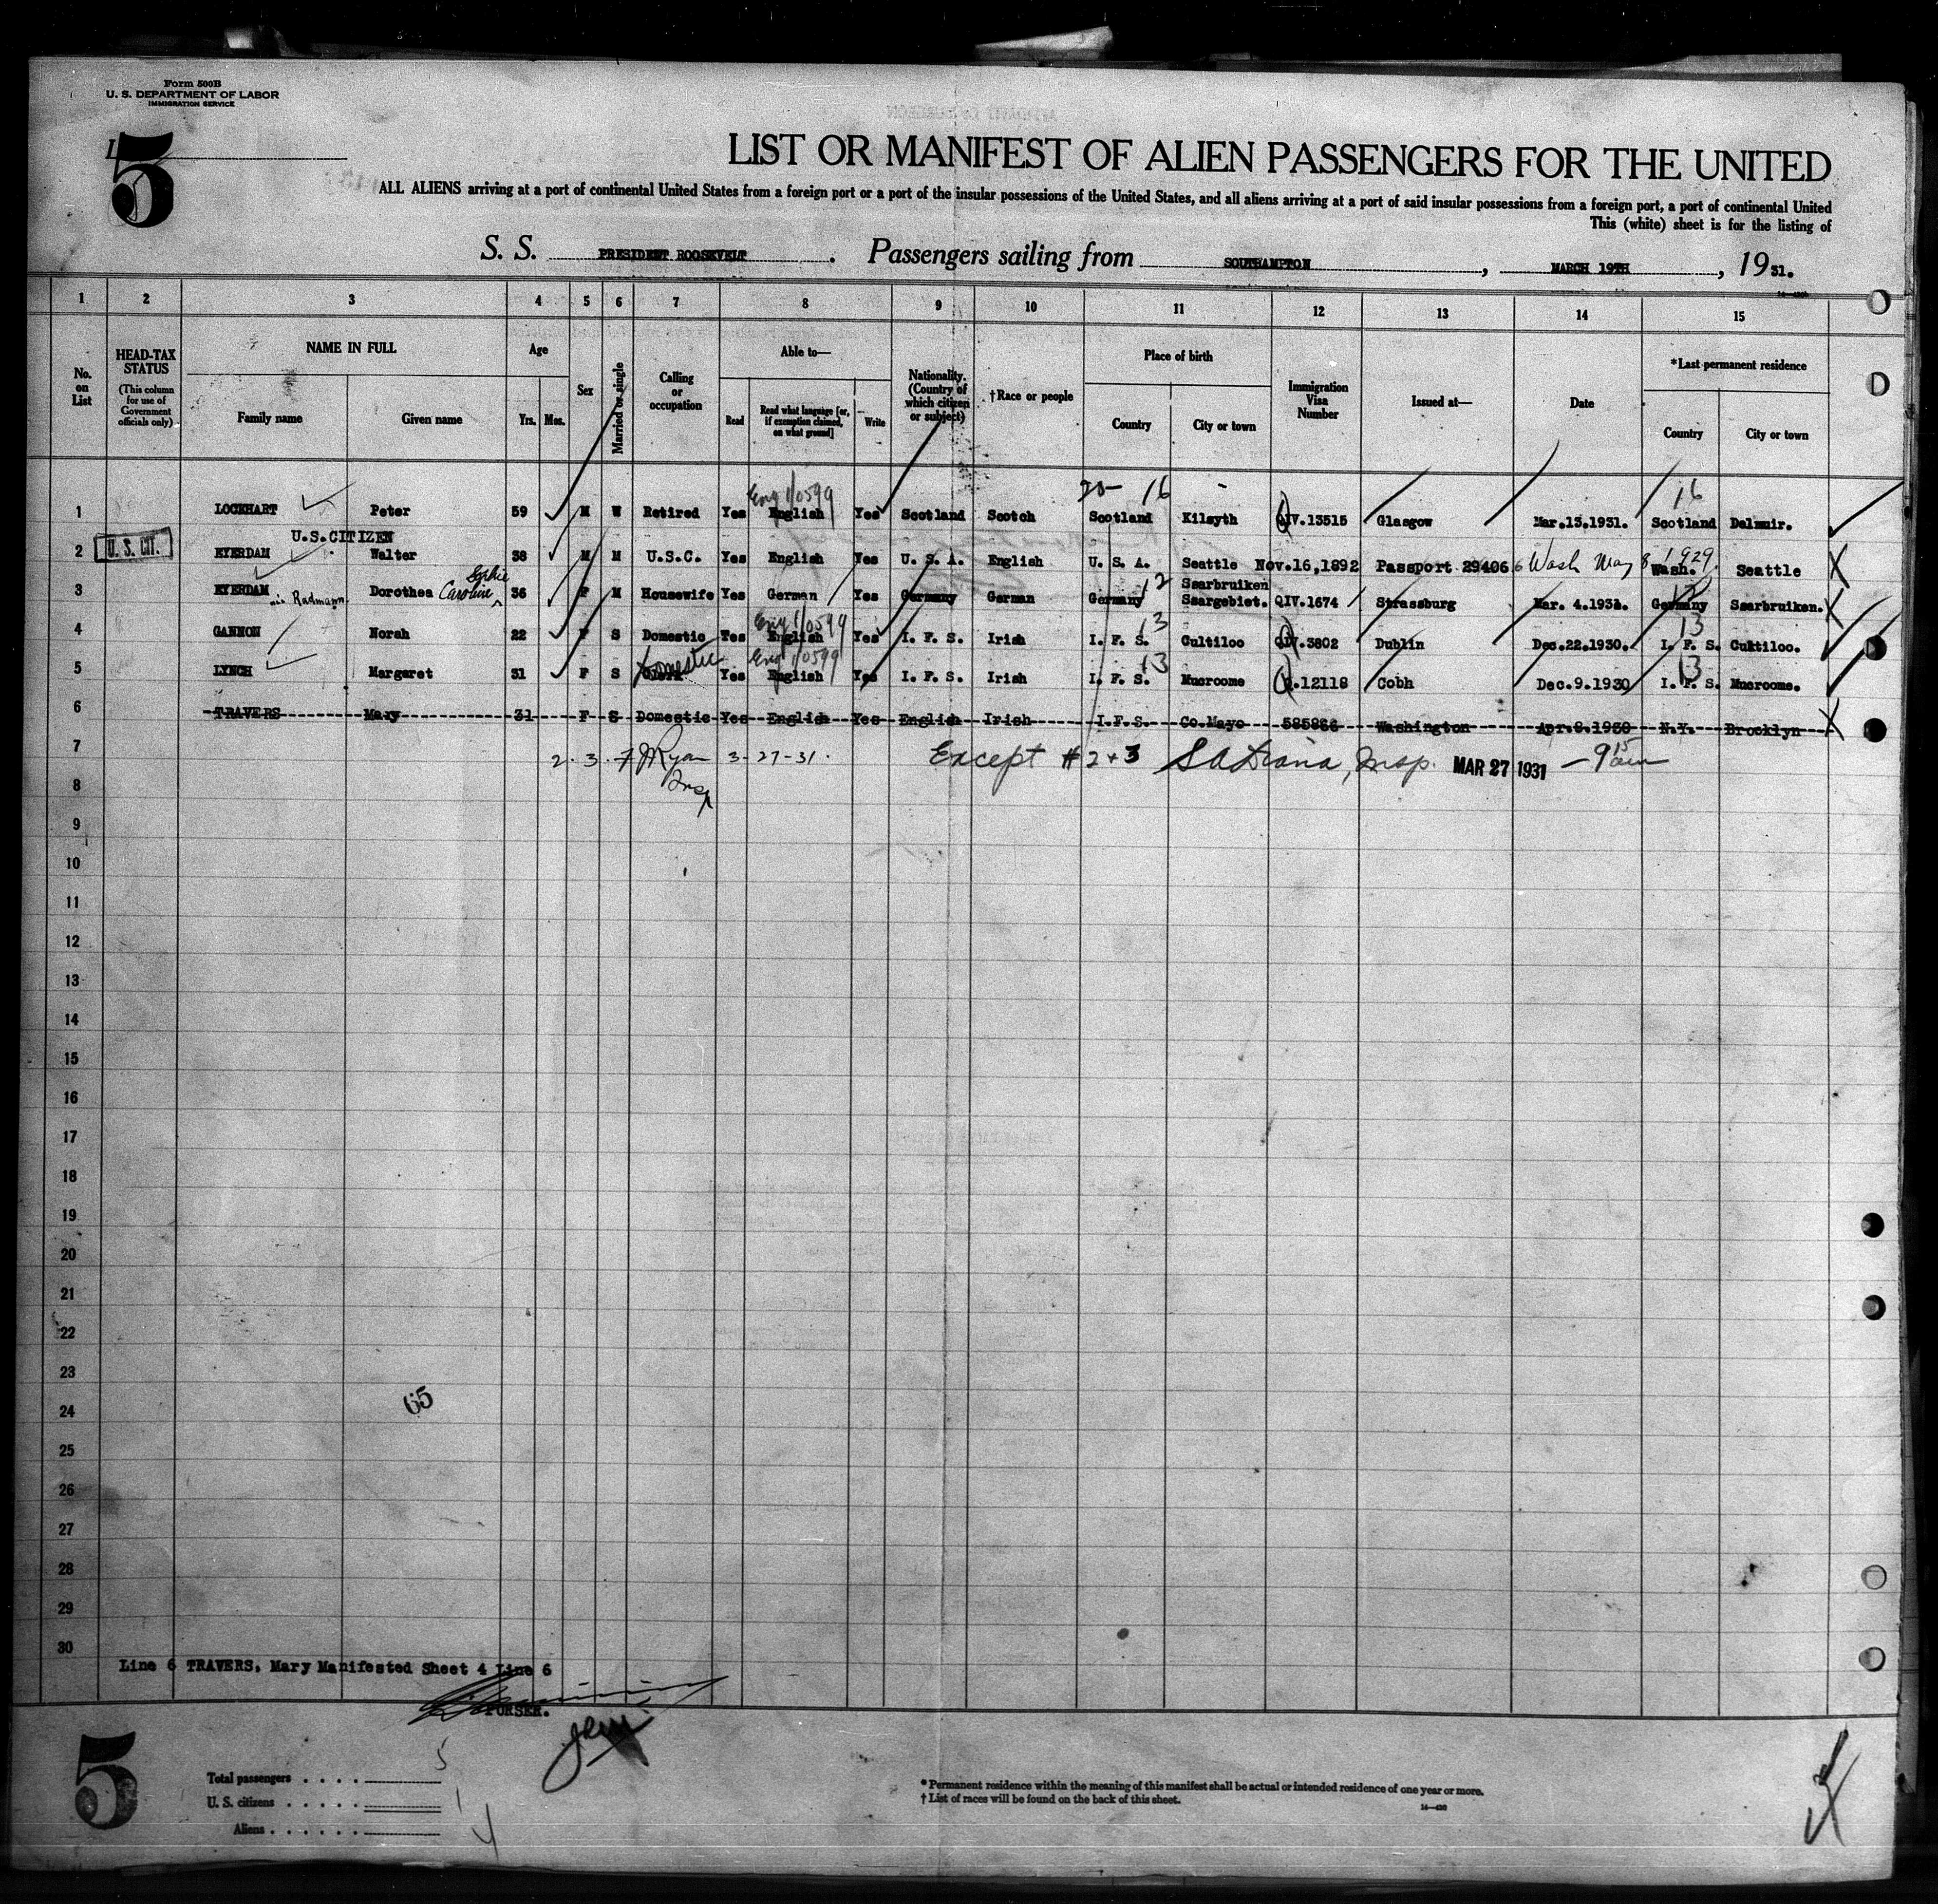 Form 500B
U. S. DEPARTMENT OF LABOR
IMMIGRATION SERVICE
5
LIST OR MANIFEST OF ALIEN PASSENGERS FOR THE UNITED
ALL ALIENS arriving at a port of continental United States from a foreign port or a port of the insular possessions of the United States, and all aliens arriving at a port of said insular possessions from a foreign port, a port of continental United
This (white) sheet is for the listing of
S. S. PRESIDENT ROOSEVELT. Passengers sailing from SOUTHAMPTON, MARCH 19TH, 1931.
1 2 3 4 5 6 7 8 9 10 11 12 13 14 15
No. on List
HEAD-TAX STATUS (This column for use of Government officials only)
NAME IN FULL
Family name Given name
Age
Yrs. Mos.
Sex
Married or single
Calling or occupation
Able to—
Read Read what language [or, if exemption claimed, on what ground] Write
Nationality. (Country of which citizen or subject)
†Race or people
Place of birth
Country City or town
Immigration Visa Number
Issued at—
Date
*Last permanent residence
Country City or town
Eng 1/0599 20- 16 - 16
1 LOCKHART Peter 59 M W Retired Yes English Yes Scotland Scotch Scotland Kilsyth QIV.13515 Glasgow Mar.13.1931. Scotland Dalmuir.
U.S.CITIZEN
2 U. S. CIT. EYERDAM Walter 38 M M U.S.C. Yes English Yes U. S. A. English U. S. A. Seattle Nov.16,1892 Passport 294066 Wash May 8 1929. Wash. Seattle
Sophie 12 Saarbruiken 12
3 EYERDAM Radmann Dorothea Caroline 36 F M Housewife Yes German Yes Germany German Germany Saargebiet. QIV.1674 Strassburg Mar. 4.1931. Germany Saarbruiken.
Eng 1/0599 13 13
4 GANNON Norah 22 F S Domestic Yes English Yes I. F. S. Irish I. F. S. Cultiloo QIV.3802 Dublin Dec.22.1930. I. F. S. Cultiloo.
Domestic Eng 1/0599 13 13
5 LYNCH Margaret 31 F S Yes English Yes I. F. S. Irish I. F. S. Mucroome Q.12118 Cobh Dec.9.1930 I. F. S. Mucroome.
6 TRAVERS Mary 31 F S Domestic Yes English Yes English Irish I.F.S. Co.Mayo 585886 Washington Apr.8.1930 N.Y. Brooklyn
7 2. 3. Ryan 3-27-31. Except # 2 + 3 Insp. MAR 27 1931 - 9 15 am
Insp
8
9
10
11
12
13
14
15
16
17
18
19
20
21
22
23
24 65
25
26
27
28
29
30
Line 6 TRAVERS, Mary Manifested Sheet 4 Line 6
PURSER.
5
Total passengers . . . . 5
U. S. citizens . . . . . 1
Aliens . . . . . . 4
* Permanent residence within the meaning of this manifest shall be actual or intended residence of one year or more.
† List of races will be found on the back of this sheet.